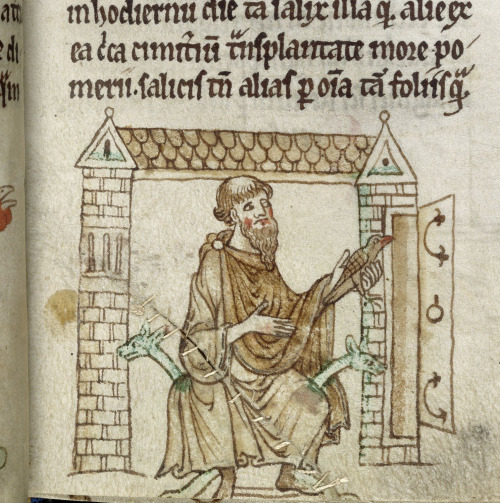 in hodiernū diē tā salix illa q̄ alie ex
ea c̄ca cimit̄iū t̄nsplantate more po
merii. salicis tn̄ alias ꝑ oīa tā foliis q̄